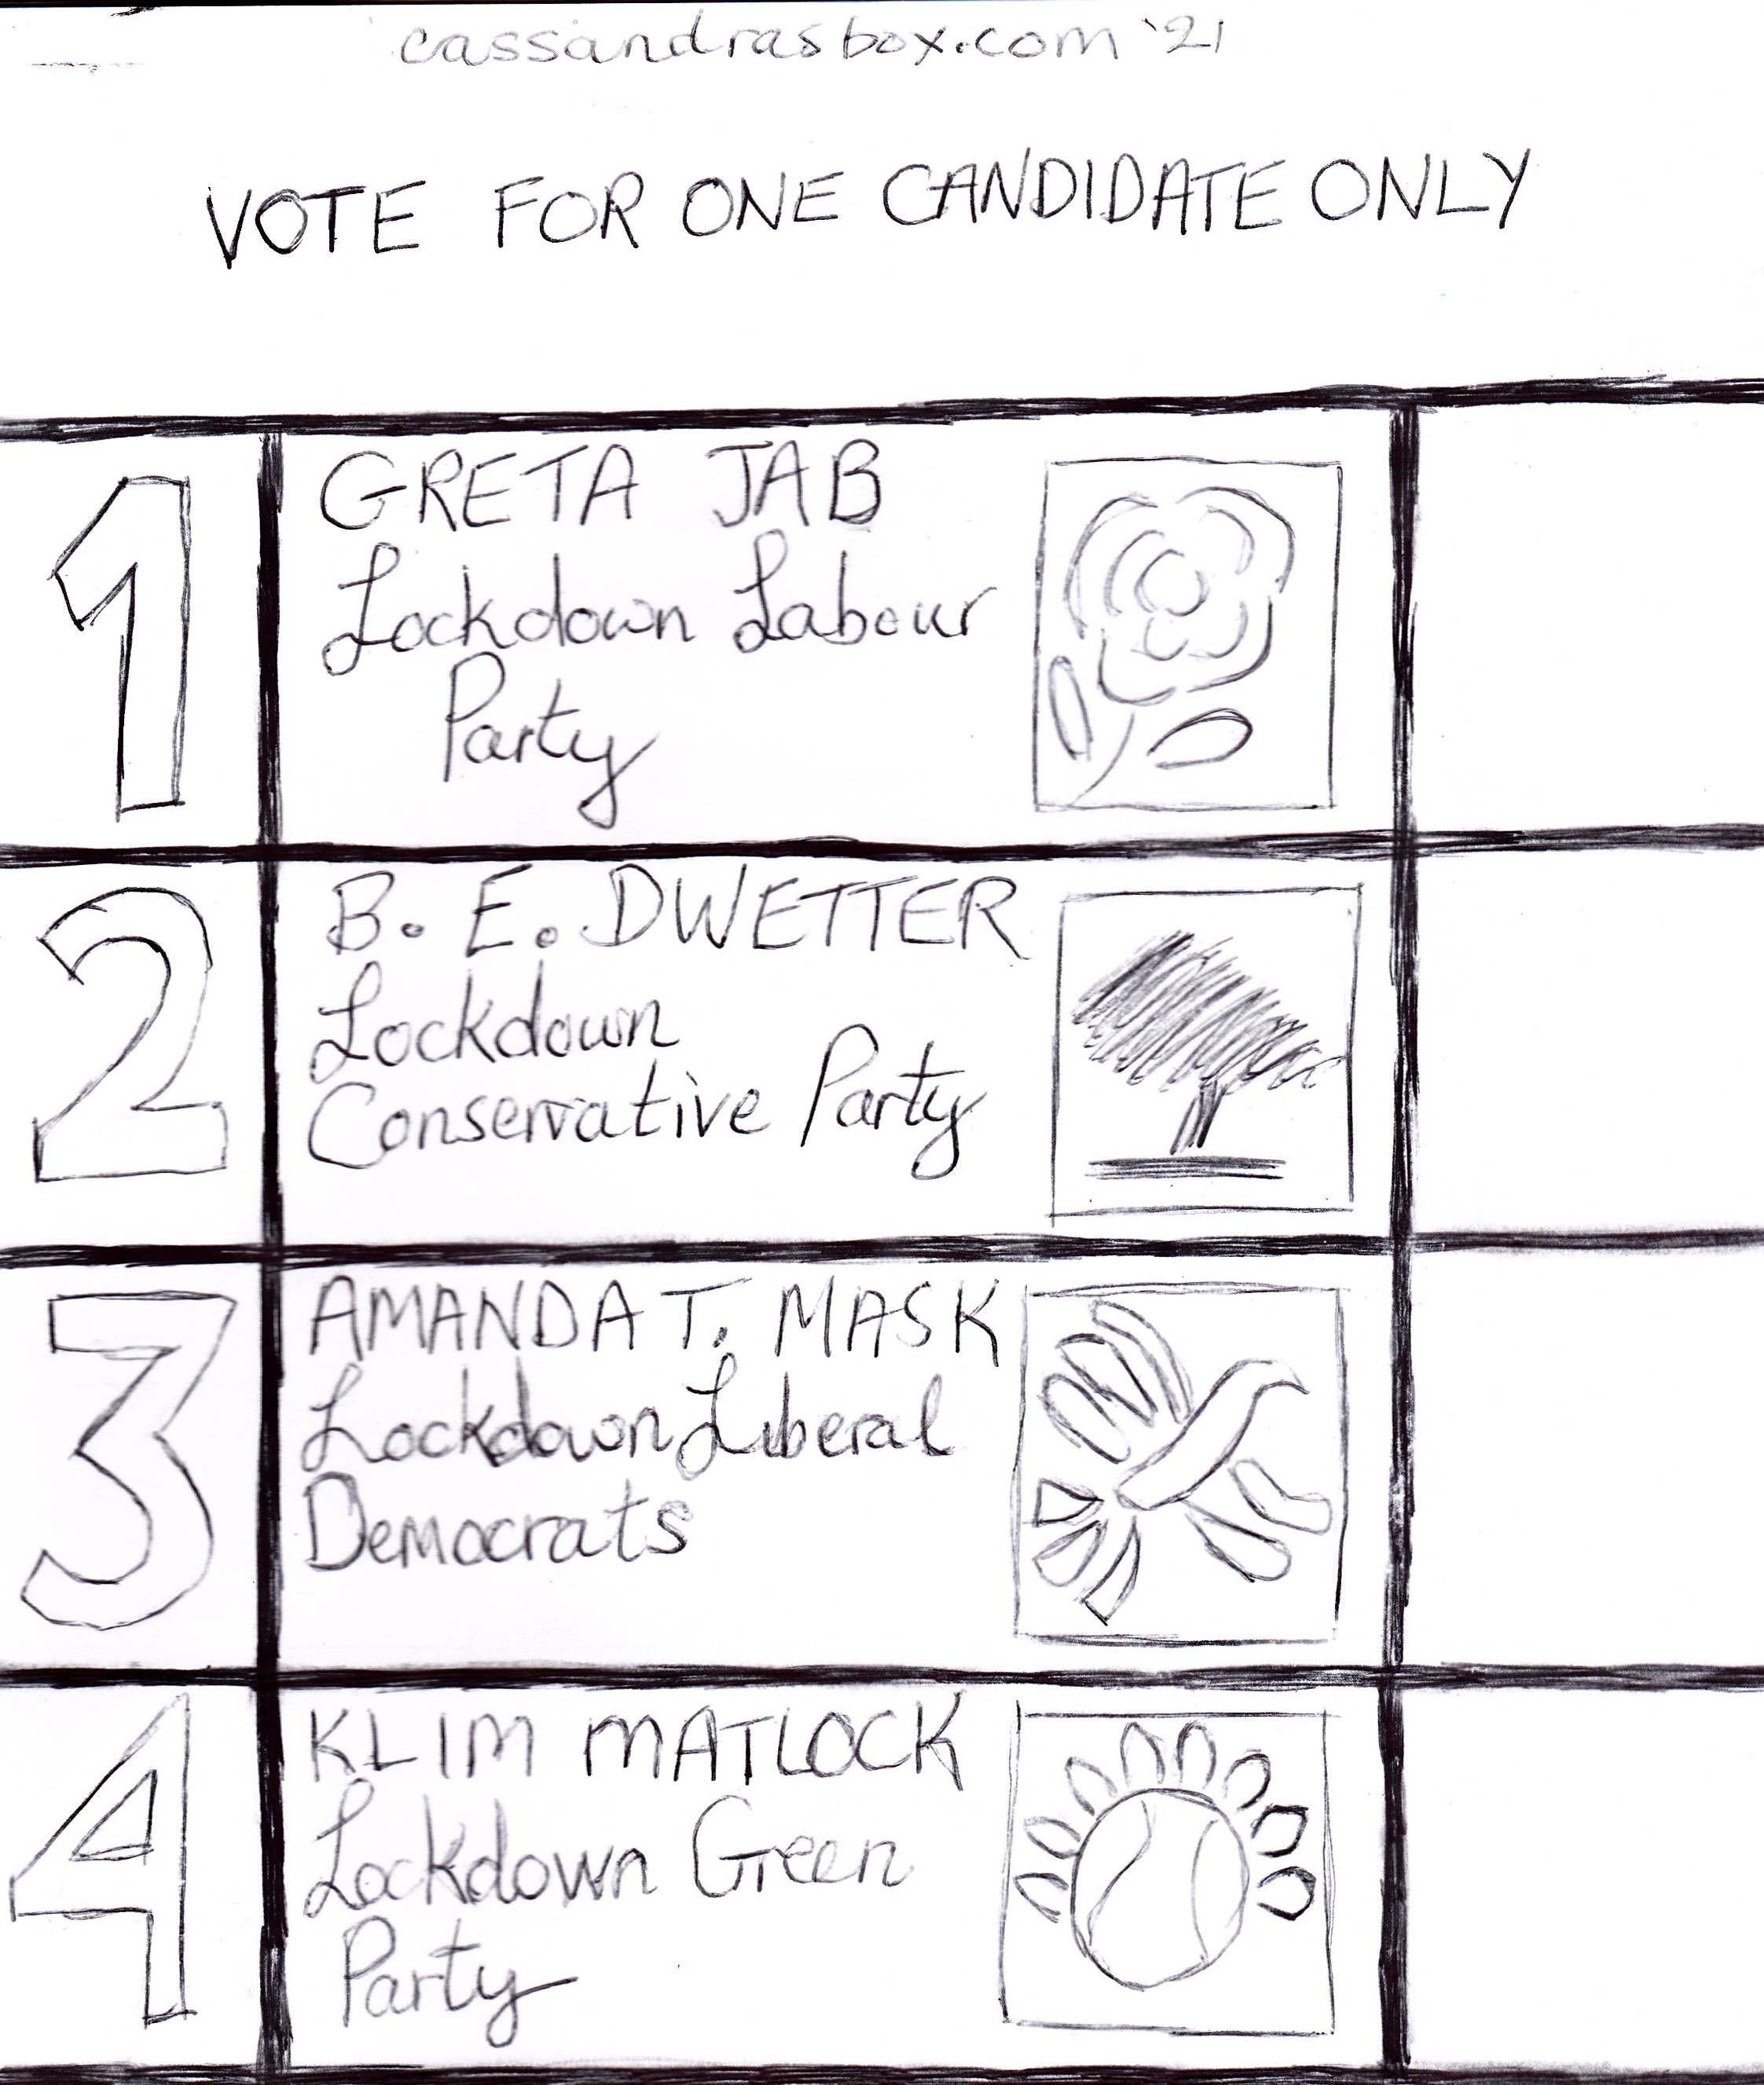 cassandrasbox.com '21
VOTE FOR ONE CANDIDATE ONLY
1
GRETA JAB
Lockdown Labour
Party
2
B. E. DWETTER
Lockdown
Conservative Party
3
AMANDA T. MASK
Lockdown Liberal
Democrats
4
KLIM MATLOCK
Lockdown Green
Party